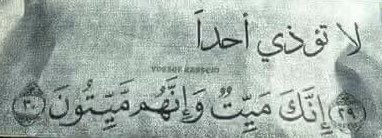 لا تؤذي أحداً
yosser kassem
٢٩ إِنَّكَ مَيِّتٌ وَإِنَّهُم مَّيِّتُونَ ٣٠